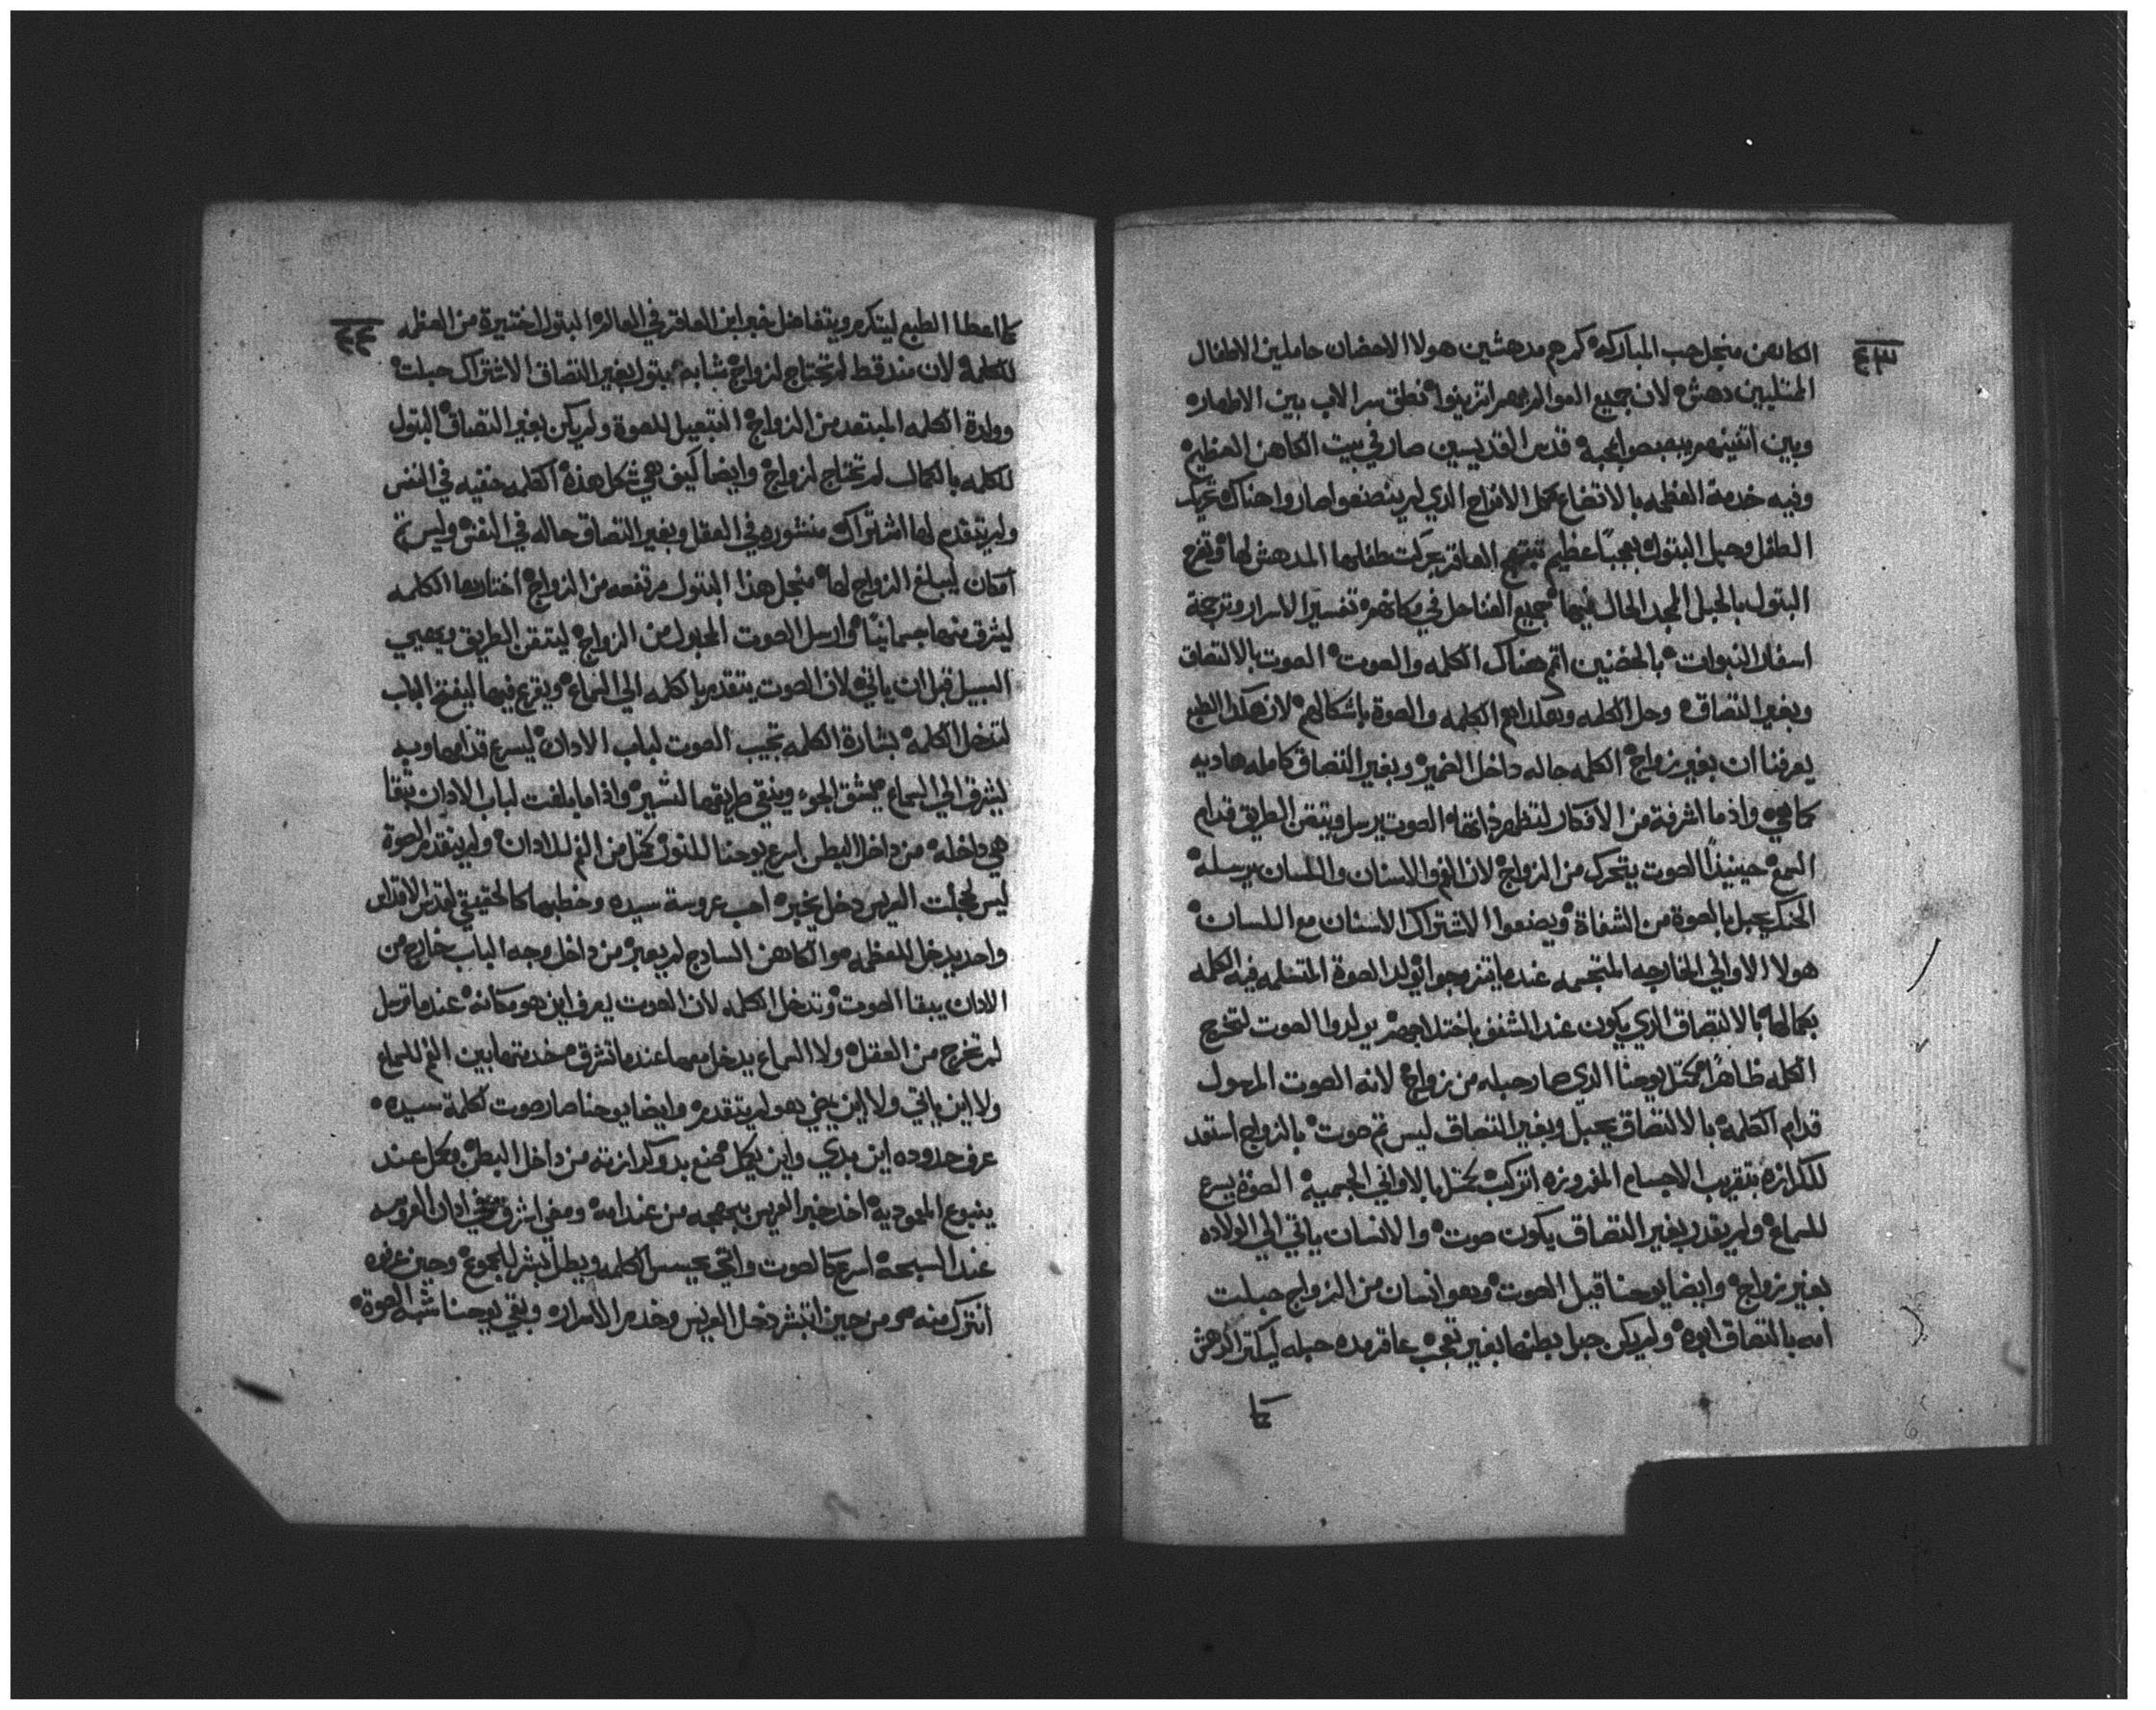 ٤٣
الكاهن منجل حب المباركه كم هم مدهشين هولا الاحضان حاملين الاطفال
دهش لان جميع انزينوا نطق سر الاب بين الاطهار
وبين اتنينهم بمحبه قدس القديسين صار في بيت الكاهن العظيم
وفيه خدمة العظمه بالاتضاع كمل الافراح الذي لم ينصنعوا صاروا هناك
الطفل وحبل البتول بعجبًا عظيم تبتهج العاقر بحركت طفلها المدهش لها وتفرح
البتول بالحبل المجد الحال فيها جميع في مكانهم تفسير الاسرار وترجمة
اسفار النبوات بالحضنين اتم هناك الكلمه والصوت الصوت بالالتصاق
وبغير التصاق وحل الكلمه الكلمه والصوة باشكالهم لان هكذا الطبع
يعرفنا ان بغير زواج الكلمه حاله داخل الضمير وبغير التصاق كامله هاديه
كما هي واذ ما اشرفة من الافكار لتظهر ذاتها الصوت يرسل ويتقن الطريق قدام
السمع حينيذًا الصوت يتحرك من الزواج لان الفم والاسنان واللسان يرسله
الحنك يحبل بالصوة من الشفاة ويصنعوا الاشتراك الاسنان مع اللسان
هولا الاواني الخارجه المتجسمه عندما يتزوجوا يولد الصوة المتسلمه فيه الكلمه
بكمالها بالالتصاق الذي يكون عند الشفف يولدوا الصوت لتخرج
الكلمه ظاهرًا مكتل يوحنا الذي صار حبله من زواج لانه الصوت المرسول
قدام الكلمه بالالتصاق يحبل وبغير التصاق ليس تم صوت بالزواج استعد
للكرازه بتقريب الاجسام المفروزه انركب بالاواني الجسميه الصوة يسرع
للسماع ولم يقدر بغير التصاق يكون صوت والانسان ياتي الي الولاده
بغير زواج وايضا يوحنا قبل الصوت وهو انسان من الزواج حبلت
امه بالتصاق ابوه ولم يكن حبل بطنها بغير تعجب عاقر مده حبله ليكتر الدهش
كلما
٤٤
كلما اعطا الطبع ليتكرم ويتفاضل خبر ابن العاقر في العالم البتول اختيرة من العظمه
للكلمه لان منذ قط لم تحتاج لزواج شابهة بتول بغير التصاق الاشتراك حبلت
وولدة الكلمه المبتعد من الزواج للصوة ولم يكن بغير التصاق البتول
للكلمه بالكمال لم تحتاج لزواج وايضا كيف هي شكل هذه الكلمه خفيه في النفس
ولم يتقدم لها اشتراك منشوره في العقل وبغير التصاق حاله في النفس وليس تم
امكان ليبلغ الزواج لها منجل هذا البتول مرتفعه من الزواج اختارها الكلمه
ليشرق منها جسمانيًا وارسل الصوت المحبول من الزواج ليتقن الطريق ويهيي
السبيل قبل ان ياتي لان الصوت يتقدم بالكلمه الي السماع ويقرع فيها ليفتح الباب
لتدخل الكلمه بشارة الكلمه تجيب الصوت لباب الادان ليسرع قدامها وبه
ليشرق الي السماع يشق الجو وينقي طريقها لتسير واذا ما بلغت لباب الادان بتقا
هي داخله من داخل البطن اسرع يوحنا للنور كمتل من الفم للادان ولم يتقدم الصوة
ليس لمجلت العريس دخل يخبر احب عروسة سيده وخطبها كالحقيقي لقدس الاقداس
واحد يدخل للعظمه هو الكاهن السادج لم يعبر من داخل وجه الباب خارج من
الادان يبقا الصوت وتدخل الكلمه لان الصوت يعرف اين هو مكانه عندما ترسل
لم تخرج من العقل ولا السماع يدخل معها عندما تشرق خدمتها بين الفم للسماع
ولا اين ياتي ولا اين يمضي هو لم يتقدم وايضا يوحنا صار صوت لكلمة سيده
عرف حدوده اين بدي واين يكمل صنع بدو كرازته من داخل البطن وكمل عند
ينبوع المعموديه اخد خبر العريس ببهجه من عند امه ومضي اشرق في ادان العروسه
عند السبحه اسرع كالصوت واتي الكلمه وبطل يبشر للجموع وحين عرفوه
انترك منه ومن حين اتبشر دخل العريس وخدم الاسرار وبقي يوحنا شبه الصوة